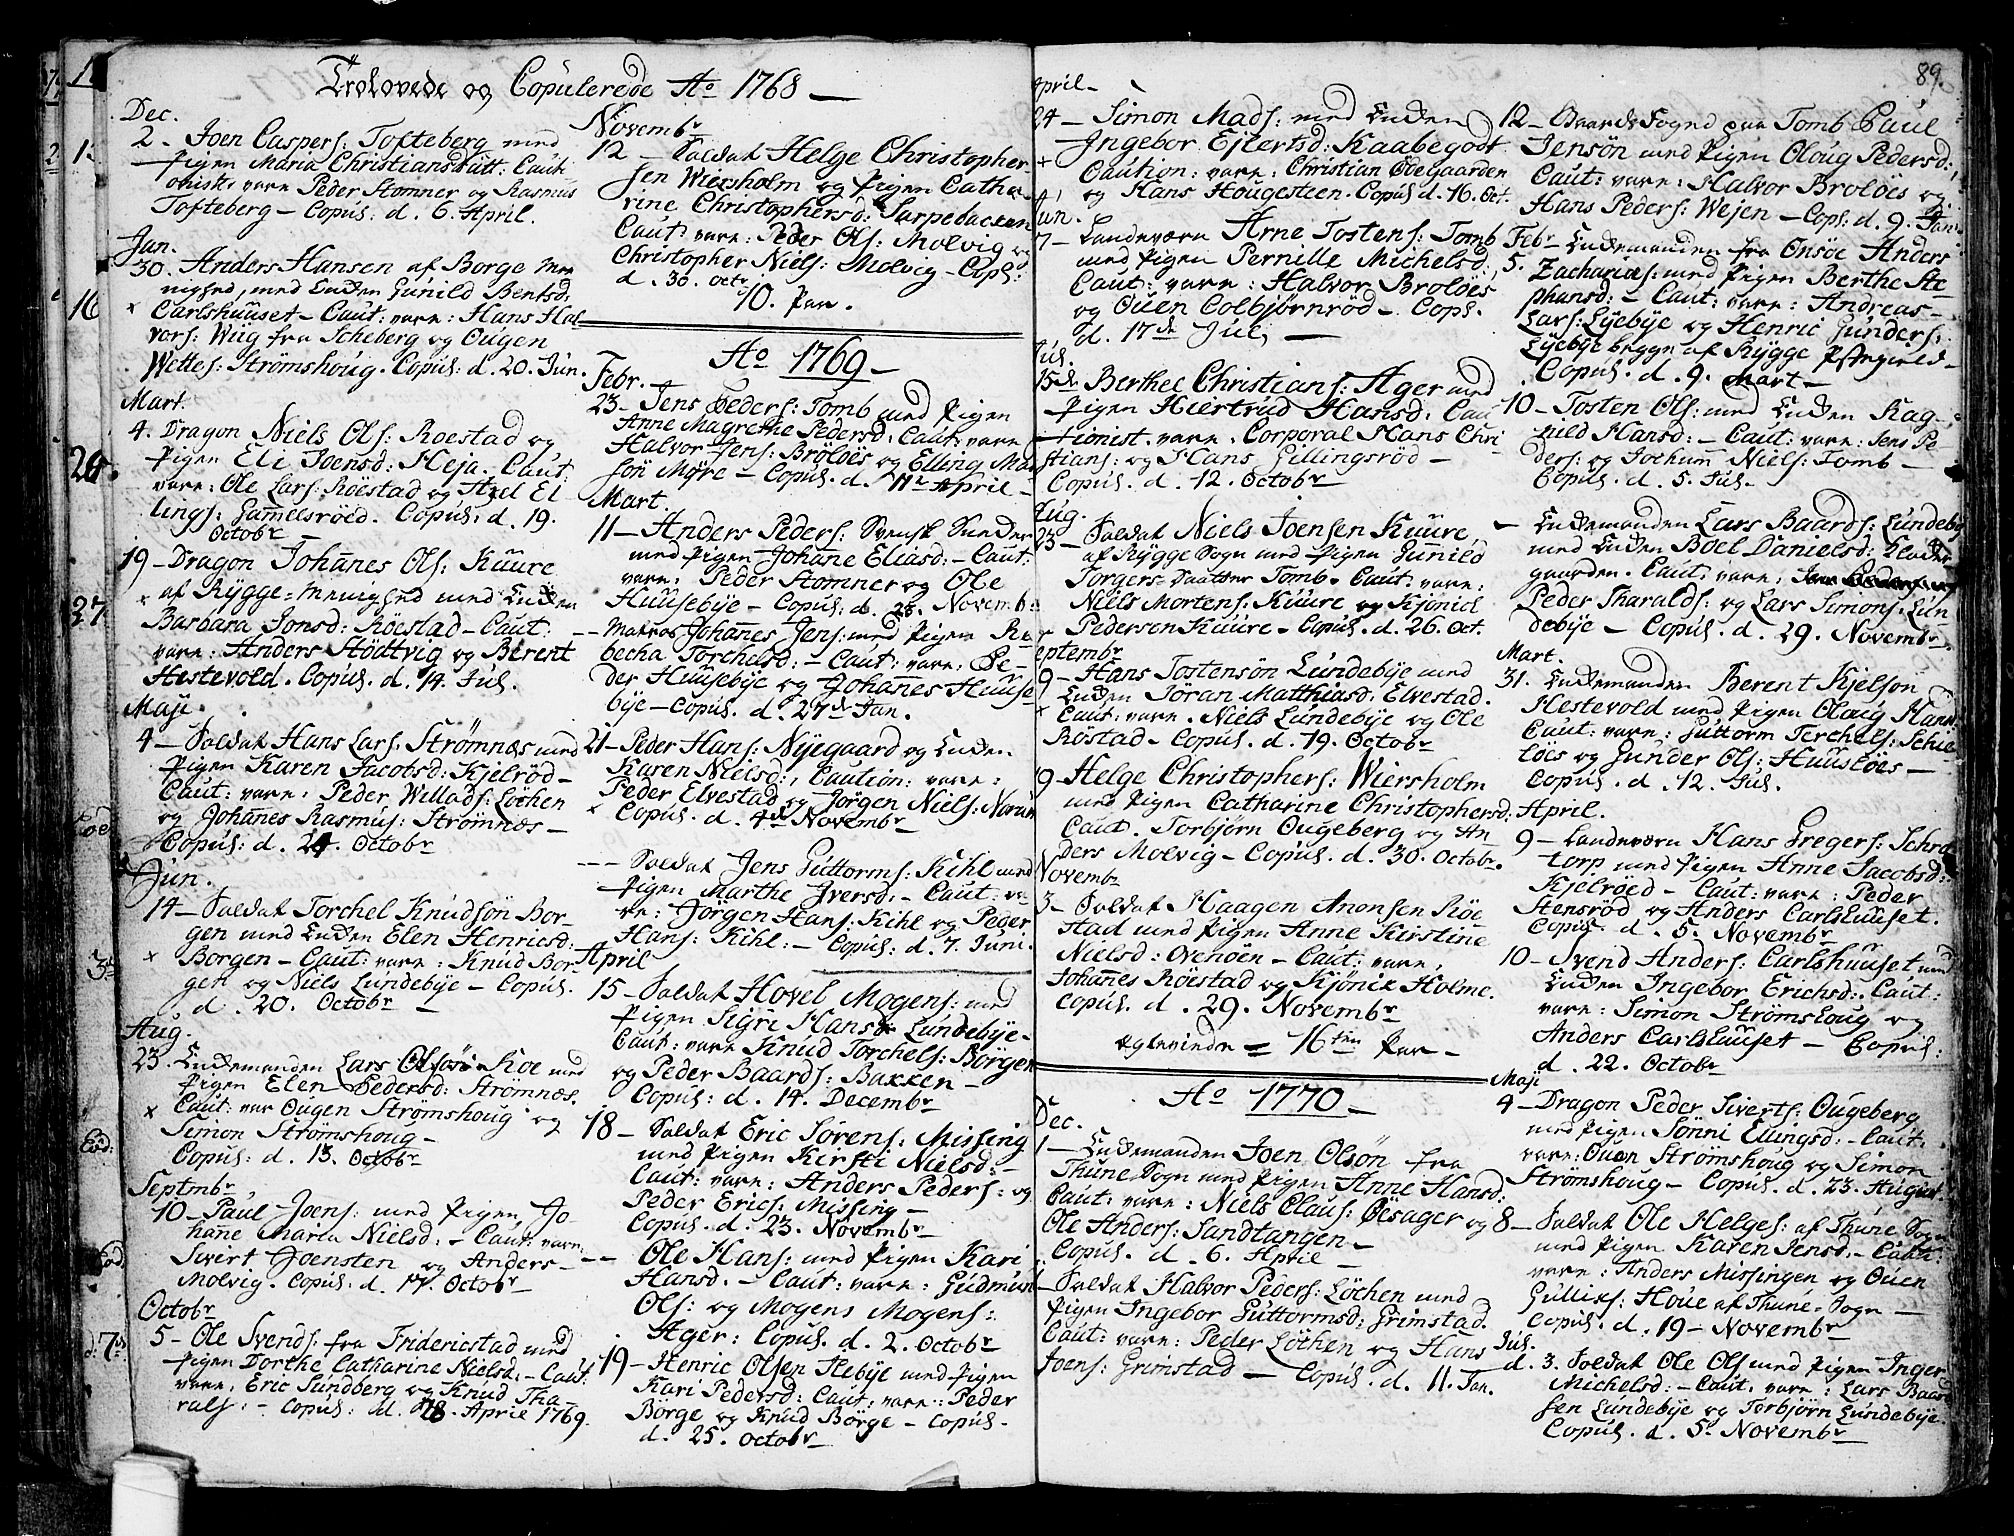 Trolovede og Copulerede Ao 1768 –
Dec.
2. Joen Caspers: Tofteberg med
Pigen Maria Christiansdått: Caut
onister vare Peder Stomner og Rasmus
Tofteberg – Copul: d. 6. April.
Jan.
30. Anders Hansen af Borge Me
nighed, med Enken Gunild Bentsd:
x Carlshuuset – Caut: vare: Hans Hal
vors: Wiig fra Scheberg og Ougen
Wettes: Strömshoug. Copul: d. 20. Jun.
Mart.
4. Dragon Niels Ols: Roestad og
Pigen Eli Joensd: Heja. Caut:
vare: Ole Lars: Röestad og Axel El
lings: Gammelsröed. Copul: d. 19.
Octobr –
19 – Dragon Johannes Ols: Kuure
x af Rygge-Menighed med Enken
Barbara Jonsd: Röestad – Caut:
vare: Anders Stödtvig og Berent
Hestevold. Copul. d. 14. Jul.
Maji.
4 – Soldat Hans Lars: Strömnæs med
Pigen Karen Jacobsd: Kjelröd –
Caut: vare: Peder Willads: Löchen
og Johannes Rasmus: Strömnæs –
Copul: d. 24. Octobr
Jun.
14 – Soldat Torchel Knudsön Bor-
gen med Enken Elen Henricsd:
x Borgen – Caut: vare: Knud Bor-
gen og Niels Lundebye – Copul.
d. 20. Octobr –
Aug.
23. Enkemanden Lars Olsön Koe med
Pigen Elen Pedersd: Strömnæs.
x Caut: var Ougen Strömshoug og
Simon Strömshoug –
Copul: d. 13. Octobr
Septmbr
10 – Paul Joens: med Pigen Jo-
hanne Maria Nielsd: – Caut: vare:
Sivert Joensten og Anders
Molvig. Copul: d. 17. Octobr
Octobr
5 – Ole Svends: fra Fridericstad med
Pigen Dorthe Catharine Nielsd: – Caut:
vare: Eric Sundberg og Knud Tha-
rals: – Copul: d. 18. April 1769.
Novembr
12 – Soldat Helge Christopher-
sen Wiersholm og Pigen Catha-
rine Christophersd: Sarpebacken
Caut: vare: Peder Ols: Molvig og
Christopher Niels: Molvig – Copl:
d. 30. Octr
10. Par.
Ao 1769 –
Febr.
23 – Jens Peders: Tomb med Pigen
Anne Magrethe Pedersd: Caut: vare
Halvor Jens: Brolöes og Elling Mad
sön Myre – Copul. d. 11te April –
Mart.
11 – Anders Peders: Svensk Sunder
med Pigen Johane Eliasd: – Caut:
vare: Peder Stomner og Ole
Huusebye – Copul: d. 28. Novemb:
-- Matros Johannes Jens: med Pigen Re
becha Torchelsd: – Caut: vare: Pe-
der Huusebye og Johannes Huuse
bye – Copul. d. 27de Jan.
21 – Peder Hans: Nyegaard og Enken
Karen Nielsd:, Caution: vare:
Peder Elvestad og Jörgen Niels: Narum
x Copul. d. 4de Novembr
--- Soldat Jens Guttorms: Kihl med
Pigen Marthe Iversd: – Caut: va-
re: Jörgen Hans: Kihl og Peder
Hans: Kihl: – Copul: d. 7. Juni.
April
15 – Soldat Hovel Mogens: med
Pigen Sigri Hansd: Lundebye –
Caut: vare Knud Torchels: Borgen
og Peder Baards: Bakken –
Copul: d. 14. Decembr
18 – Soldat Eric Sörens: Missing
med Pigen Kirsti Nielsd: –
Caut: vare: Anders Peders: og
Peder Erics: Missing –
Copul. d. 23. Novembr
-- Ole Hans: med Pigen Kari
Hansd. – Caut: vare: Gudmun
Ols: og Mogens Mogens:
Ager: Copul. d. 2. Octobr
19 – Henric Olsen Hebye med Pigen
Kari Pedersd: Caut: vare: Peder
Börge og Knud Börge – Copul.
d. 25. Octobr
89.
April –
24 – Simon Mads: med Enken
x Ingebor Ejlertsd: Kaabegodt
Caution: vare: Christian Ödegaarden
og Hans Hougesteen. Copul d. 16. Oct.
Jun.
7 – Landeværn Arne Tostens: Tomb
med Pigen Pernille Michelsd:
Caut: vare: Halvor Brolöes
og Ouen Colbjørnröd – Cops.
d. 17de Jul. –
Jul.
15de Berthel Christians: Ager med
Pigen Hiertrud Hansd: Cau
tionist. vare. Corporal Hans Chri
stians: og Hans Gillingsröd –
Copul: d. 12. Octobr
Aug.
23 – Soldat Niels Joensen Kuure,
af Rygge Sogn med Pigen Gunild
Torgers Daatter Tomb. Caut: vare:
Niels Mortens: Kuure og Kjönich
Pedersen Kuure – Copul. d. 26. Oct.
Septembr
9 – Hans Tostensön Lundebye med
x Enken Jöran Matthiasd: Elvestad.
Caut: vare. Niels Lundebye og Ole
Röstad – Copul. d. 19. Octobr
19 – Helge Christophers: Wiersholm
med Pigen Catharine Christophersd:
Caut. Torbjörn Ougeberg og An-
ders Molvig – Copul. d. 30. Octobr.
Novembr
3 – Soldat Haagen Anonsen Röe
stad med Pigen Anne Kirstine
Nielsd: Ovenöen – Caut: vare,
Johannes Röestad og Kjönik Holme.
Copul. d. 29. Novembr
= 16 Par –
Ao 1770 –
Dec.
1 – Enkemanden Joen Olsön fra
Thune Sogn med Pigen Anne Hansd:
Caut: vare: Niels Claus: Öesager og
Ole Anders: Sandtangen –
Copul. d. 6. April –
– Soldat Halvor Peders: Löchen med
Pigen Ingebor Guttormsd: Grimstad.
Caut: vare: Peder Löchen og Hans
Joens: Grimstad – Copul. d. 11. Jan.
12 – Sogned paa Tomb Paul
Jensön med Pigen Oloug Pedersd:,
Caut: vare: Halvor Brolöes og
Hans Peders: Wejen – Cops. d. 9. Jan:
Febr
5. Enkemanden fra Onsöe Anders
Zacharies: med Pigen Berthe Ste-
phansd: – Caut: vare: Andreas –
Lars: Lyebye og Henric Gunders:
Lyebye begge af Rygge Præstegield –
Copul. d. 9. Mart –
10 – Tosten Ols: med Enken Rag-
nild Hansd: – Caut: vare: Jens Pe-
ders: og Jochum Niels: Tomb –
Copul. d. 5. Jul. –
– Enkemanden Lars Baards: Lundeby
med Enken Boel Danielsd: Klocker
gaarden. Caut: vare:
Peder Tharalds: og Lars Simons: Lun
debye – Copul. d. 29. Novembr
Mart.
31. Enkemanden Berent Kjelson
Hestevold med Pigen Olaug Hans
Caut: vare: Guttorm Terchels: Schie
löes og Gunder Ols: Huuslöes –
Copul. d. 12. Jul.
April.
9 – Landeværn Hans Gregers: Schra
torp med Pigen Anne Jacobsd:
Kjelröed – Caut: vare: Peder
Stensröd og Anders Carlshuuset.
Copul. d. 5. Novembr
10 – Svend Anders: Carlshuuset med
Enken Ingebor Erichsd: Caut:
vare: Simon Strömshoug og
Anders Carlshuuset – Copul:
d. 22. Octobr
Maji
4 – Dragon Peder Siverts: Ougeberg
med Pigen Sönni Elingsd: – Caut.
vare: Ouen Strömshoug og Simon
Strömshoug – Copul. d. 23. August.
8 – Soldat Ole Helges: af Thune Sogn
med Pigen Karen Jensd: – Caut:
vare: Anders Missingen og Ouen
Gulliks: Houe af Thune-Sogn –
Copul. d. 19 – Novembr
Jul.
d. 3. Soldat Ole Ols med Pigen Inger
Michelsd: – Caut. vare: Lars Baard
sen Lundebye og Torbjörn Lundebye
Copul. d. 5. Novembr